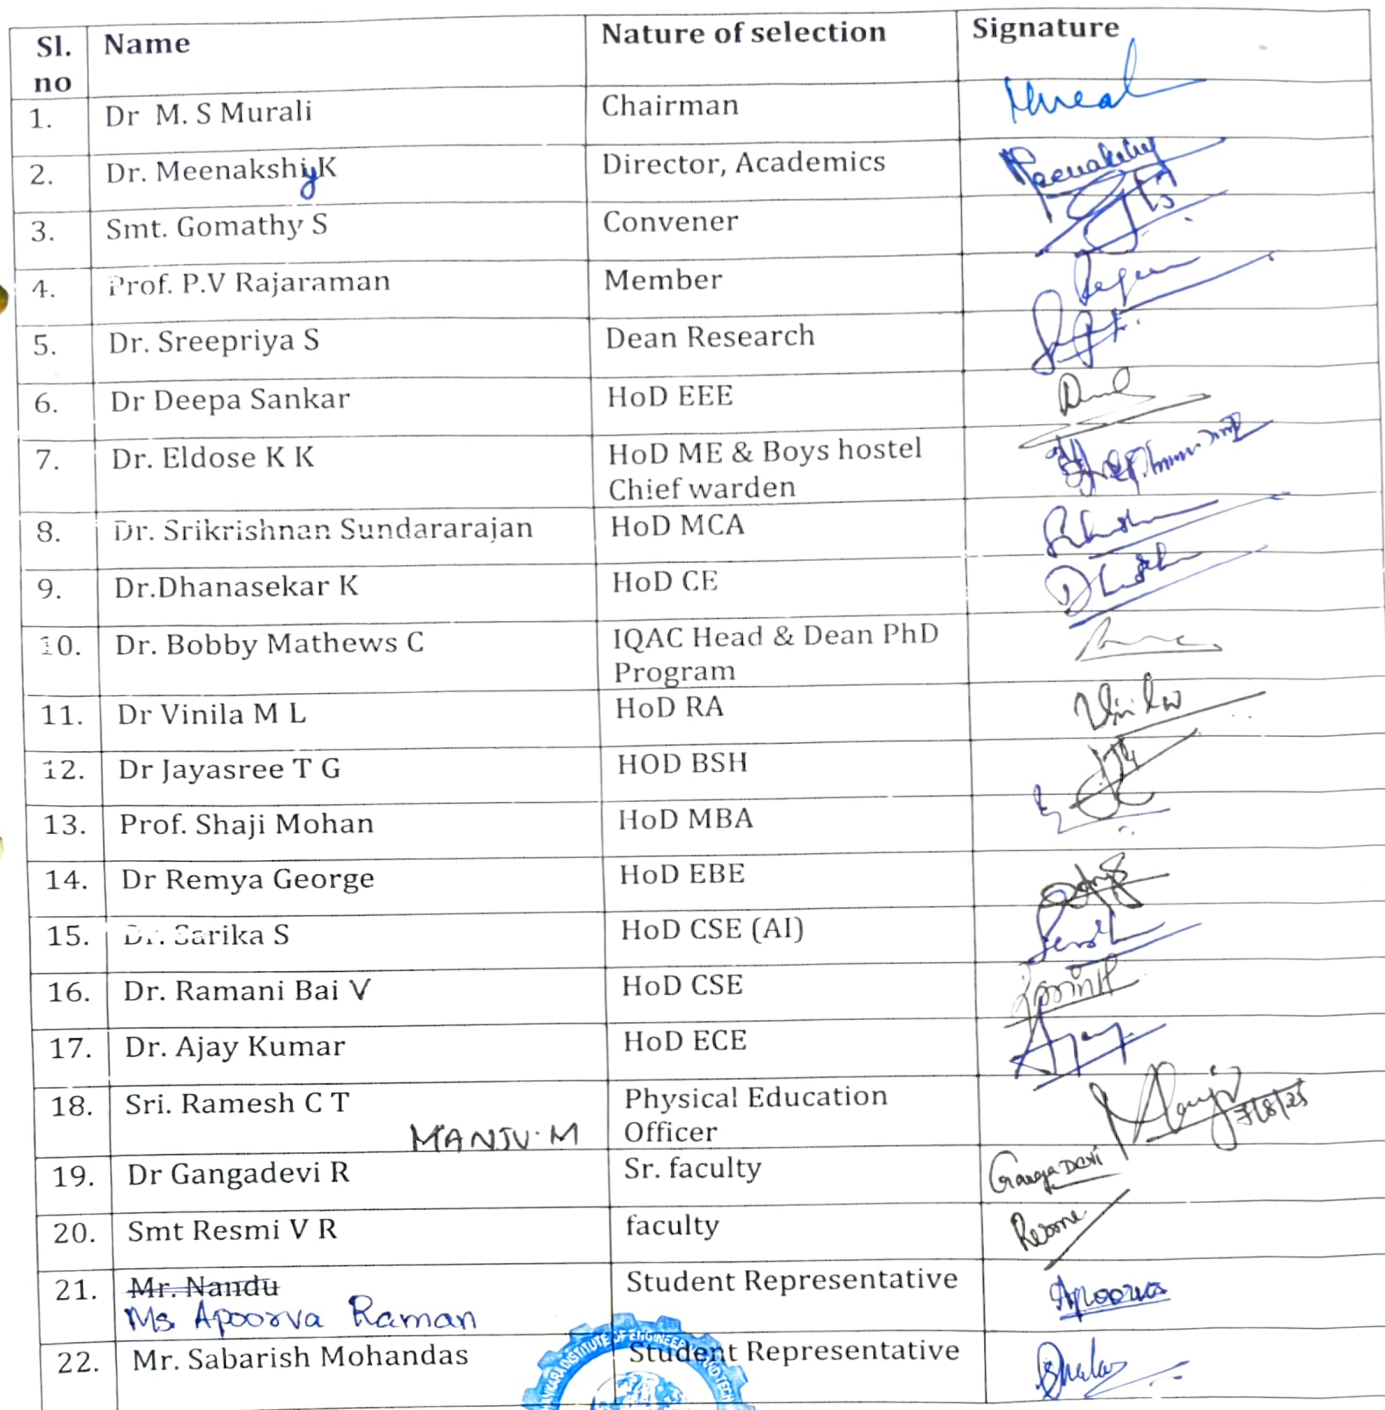 Sl. no | Name | Nature of selection | Signature
1. | Dr M. S Murali | Chairman | 
2. | Dr. Meenakshy K | Director, Academics | Meenakshy
3. | Smt. Gomathy S | Convener
4. | Prof. P.V Rajaraman | Member
5. | Dr. Sreepriya S | Dean Research
6. | Dr Deepa Sankar | HoD EEE
7. | Dr. Eldose K K | HoD ME & Boys hostel
Chief warden
8. | Dr. Srikrishnan Sundararajan | HoD MCA
9. | Dr.Dhanasekar K | HoD CE
10. | Dr. Bobby Mathews C | IQAC Head & Dean PhD
Program
11. | Dr Vinila M L | HoD RA
12. | Dr Jayasree T G | HOD BSH
13. | Prof. Shaji Mohan | HoD MBA
14. | Dr Remya George | HoD EBE
15. | Dr. Sarika S | HoD CSE (AI)
16. | Dr. Ramani Bai V | HoD CSE
17. | Dr. Ajay Kumar | HoD ECE | Ajay
18. | Sri. Ramesh C T | Physical Education
MANJU.M | Officer
19. | Dr Gangadevi R | Sr. faculty | Ganga Devi
20. | Smt Resmi V R | faculty
21. | Mr. Nandu | Student Representative | Apoorva
Ms Apoorva Raman
22. | Mr. Sabarish Mohandas | Student Representative